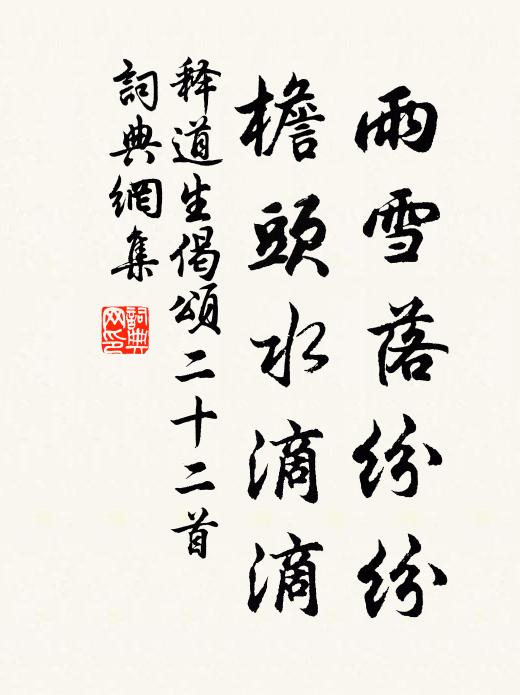 雨雪落紛紛
檐頭水滴滴
释道生偈頌二十二首
詞典網集
詞典网印